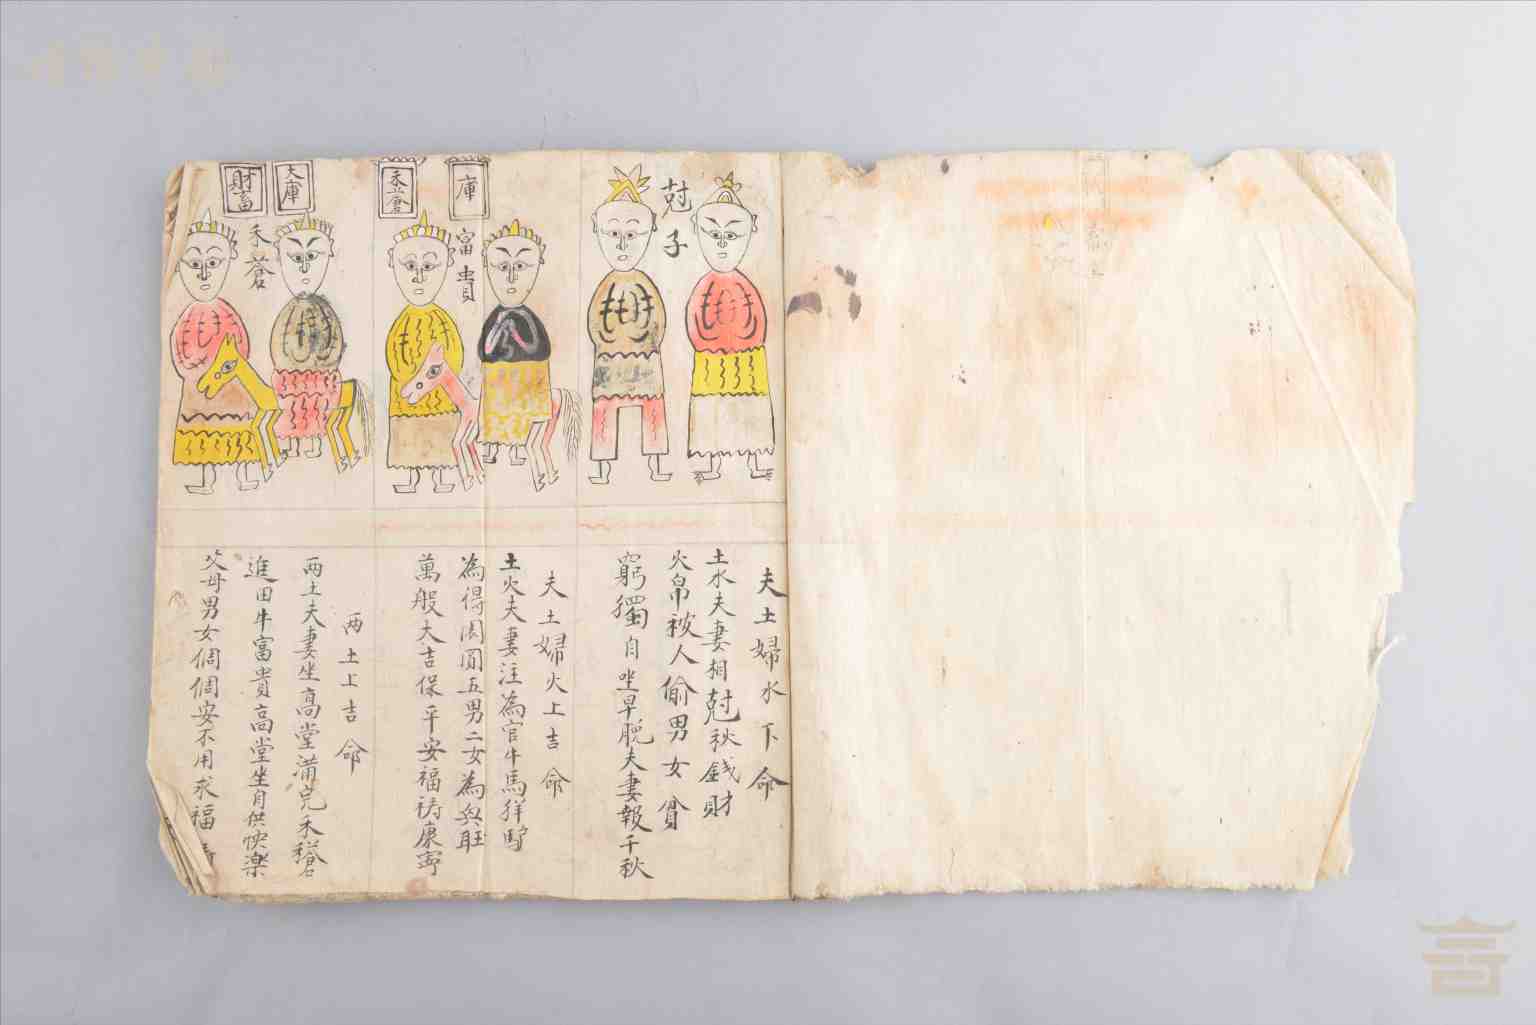 尅子
夫土婦水下命
土水夫妻相尅秋錢財
火帛被人偷男女貧
窮獨自坐早脫夫妻報千秋
庫
禾倉
富貴
夫土婦火上吉命
土火夫妻注為官牛馬羊驢
為得団圓五男二女為兴旺
萬般大吉保平安福祷康寜
大庫
財畜
禾蒼
两土上吉命
两土夫妻坐高堂滿完禾稵
進田牛富貴高堂坐自在快樂
父母男女個個安不用求福